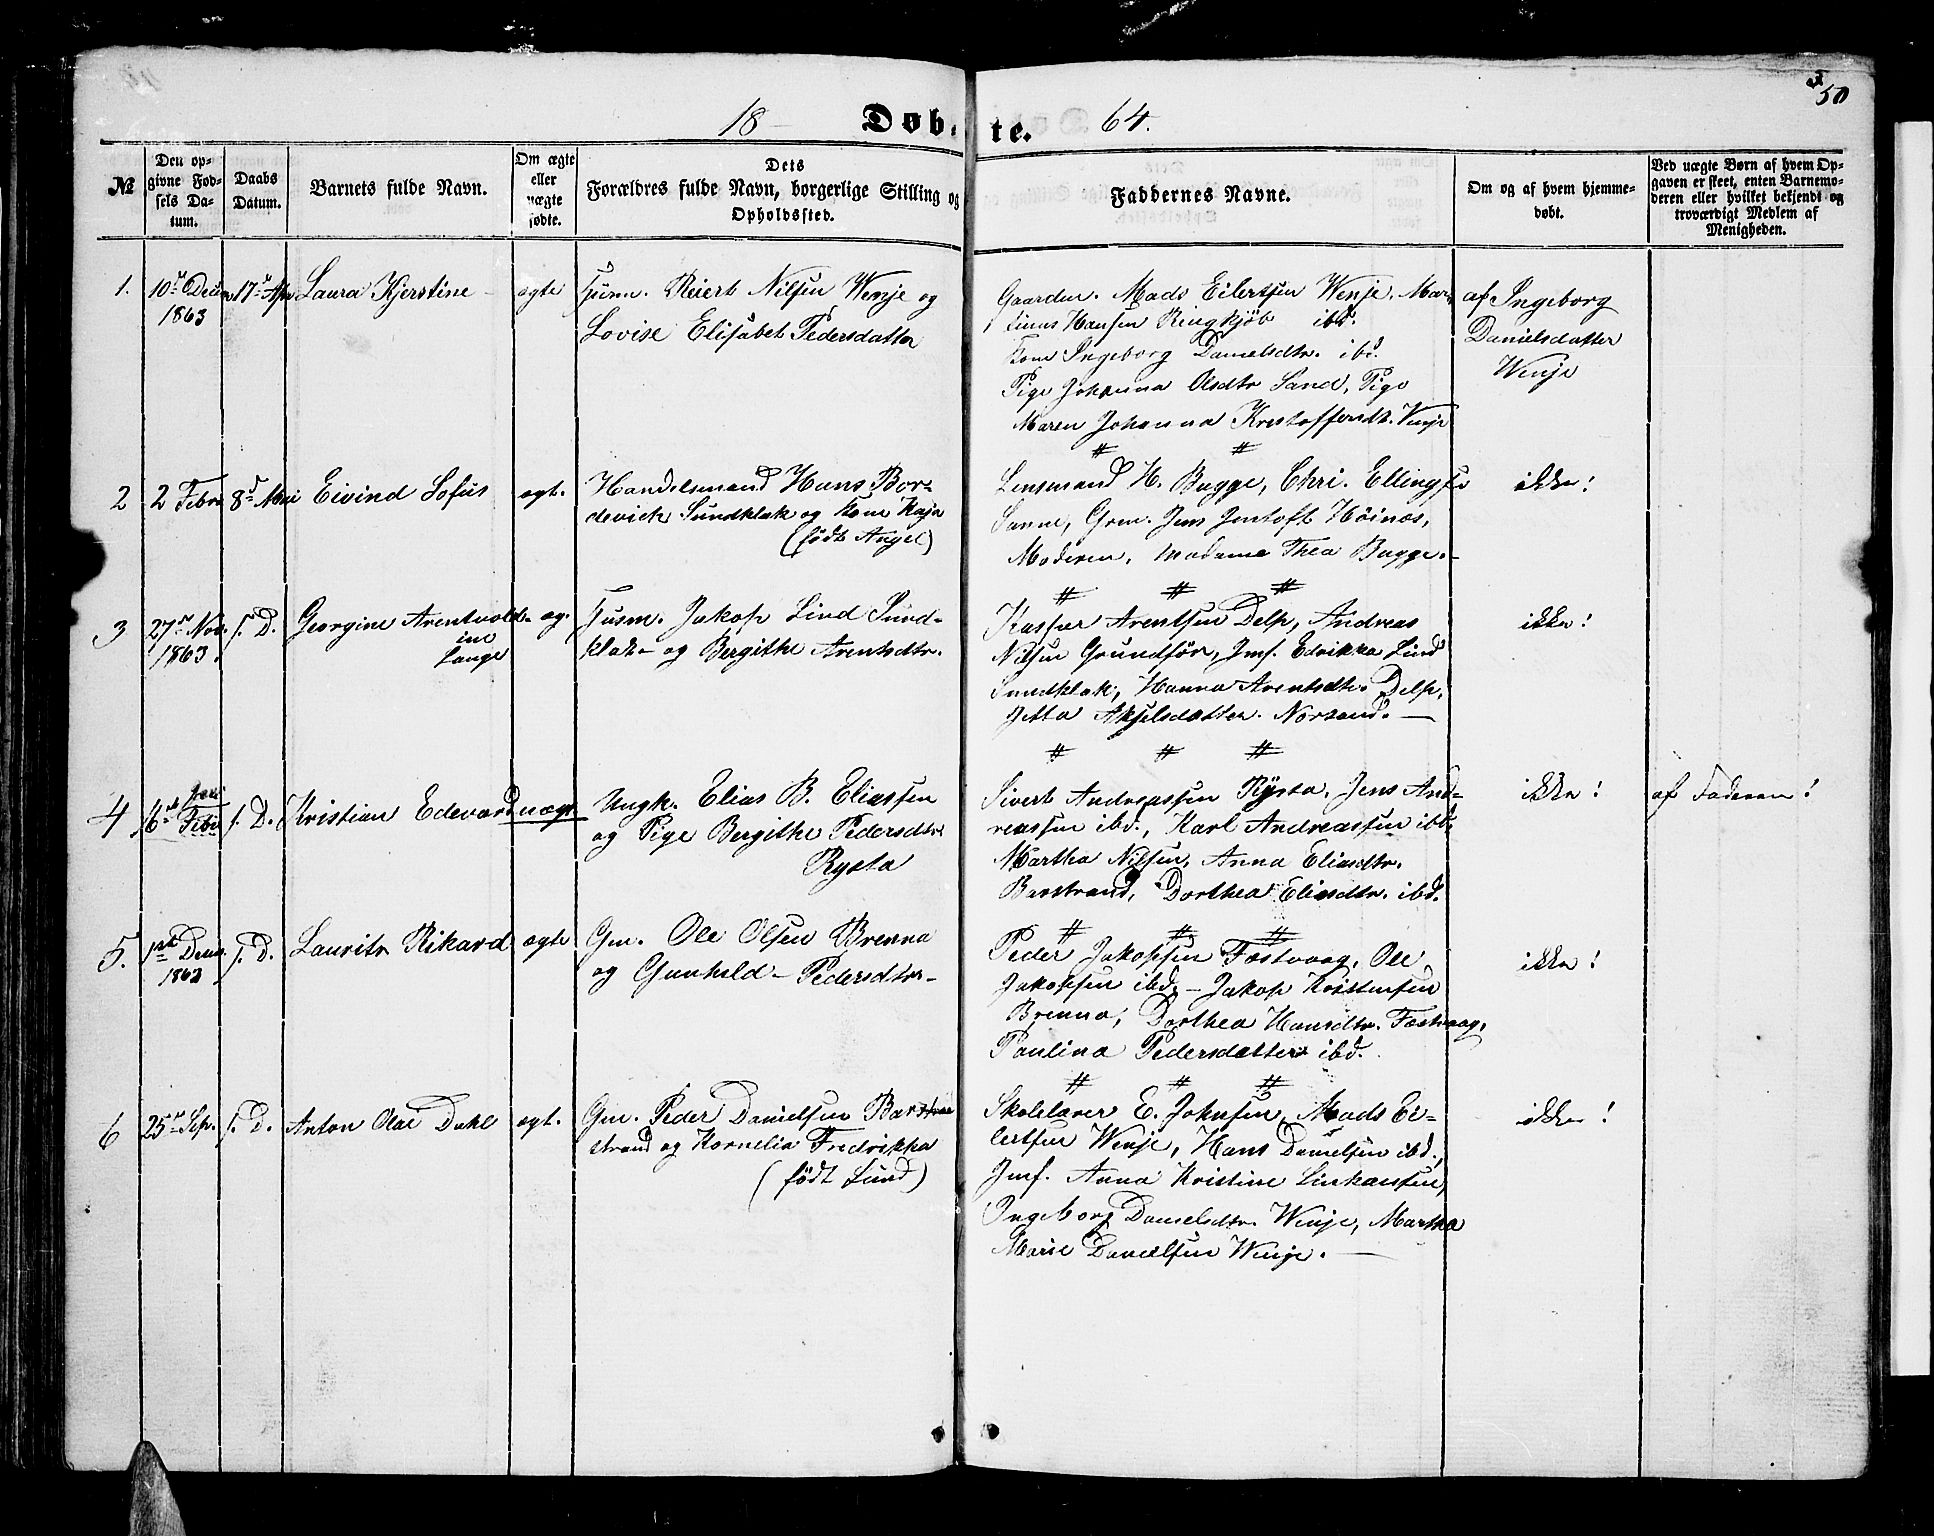 50
18 Døbte. 64.
№
Den opgivne Fødsels Datum.
Daabs Datum.
Barnets fulde Navn.
Om ægte eller uægte fødte.
Dets Forældres fulde Navn, borgerlige Stilling og Opholdssted.
Faddernes Navne.
Om og af hvem hjemmedøbt.
Ved uægte Børn af hvem Opgaven er skeet, enten Barnemoderen eller hvilket bekjendt og troværdigt Medlem af Menigheden.
1.
10de Decem
1863
17de Apr
Laura Kjerstine
ægte
Husm. Reiert Nilsen Wenje og
Lovise Elisabet Pedersdatter
Gaardm. Mads Eilertsen Wenje, Mar
tinus Hansen Ringkjøb ibd.
Kone Ingeborg Danielsdtr. ibd.
Pige Johanna Olsdtr Sand, Pige
Maren Johanna Kristoffersdt. Wenje
af Ingeborg
Danielsdatter
Wenje
# #
2
2 Febr
8de Mai
Eivind Sofus
ægt.
Handelsmand Hans Bor-
devick Sundklak og Kone Kaja
(født Angel)
Lensmand H. Bugge, Chri. Ellingsen
Sanne, Grm. Jens Jentoft Høines,
Moderen, Madame Thea Bugge.
ikke!
# # #
3
27de Nov.
1863.
s. D.
Georgine Arentvold-
ine
Lange
æg.
Husm. Jakop Lind Sund-
klak- og Bergithe Arentsdtr.
Kasper Arentsen Delp, Andreas
Nilsen Grundfør, Jmf. Edrikka Lind
Sundklak, Hanna Arentsdtr. Delp,
Jetta Akselsdatter Norsand.
ikke!
# # #
4
16de Febr
Jan
s. D.
Kristian Edevard
uægt
Ungk. Elias B. Eliassen
og Pige Bergithe Pedersdtr
Rysta
Sivert Andreassen Rysta, Jens And-
reassen ibd., Karl Andreassen ibd,
Martha Nilsen, Anna Eliasdtr.
Barstrand, Dorthea Eliasdtr. ibd.
ikke!
af Faderen!
# # #
5.
1ste Decm.
1863
s. D.
Lauritz Rikard
ægte
Gm. Ole Olsen Brenna
og Gunhild Pedersdtr
Peder Jakopsen Fæstvaag, Ole
Jakopsen ibd, Jakop Kristensen
Brenna, Dorthea Hansdtr. Fæstvaag,
Paulina Pedersdatter ibd.
ikke!
# # #
6
25de Sep.
s. D.
Anton Olai Dahl
ægt.
Gm. Peder Danielsen Bar
strand og Kornelia Fredrikka
(født Lund)
Skolelærer E. Johnsen, Mads Ei-
lertsen Wenje, Hans Danielsen ibd.,
Jmf. Anna Kristine
Ingeborg Danielsdtr. Wenje, Martha
Marie Danielsen Wenje.
ikke!